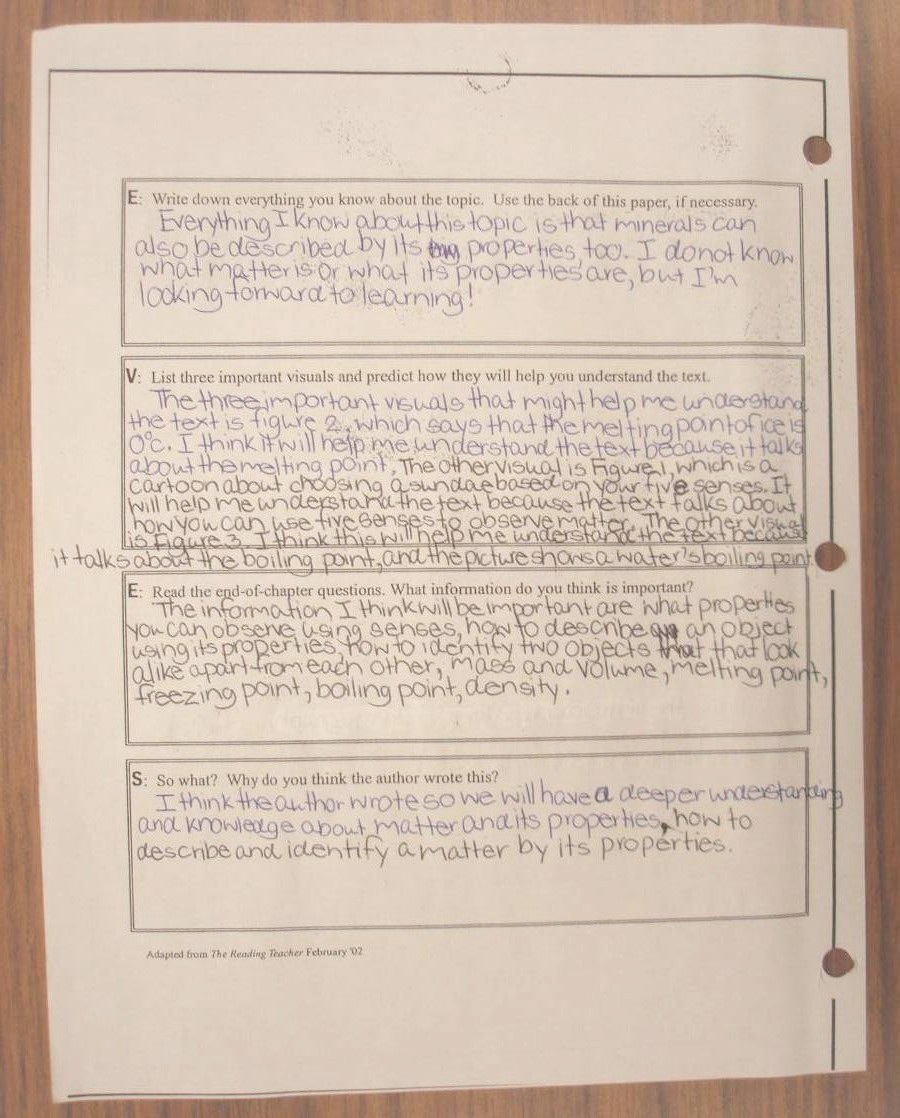 E: Write down everything you know about the topic. Use the back of this paper, if necessary.
Everything I know about this topic is that minerals can
also be described by its properties, too. I do not know
what matter is or what its properties are, but I'm
looking forward to learning!
V: List three important visuals and predict how they will help you understand the text.
The three important visuals that might help me understand
the text is figure 2, which says that the melting point of ice is
0°c. I think it will help me understand the text because it talks
about the melting point. The other visual is Figure 1, which is a
cartoon about choosing a sundae based on your five senses. It
will help me understand the text because the text talks about
how you can use five senses to observe matter. The other visual
is Figure 3. I think this will help me understand the text because
it talks about the boiling point, and the picture shows a water's boiling point.
E: Read the end-of-chapter questions. What information do you think is important?
The information I think will be important are what properties
you can observe using senses, how to describe an object
using its properties, how to identify two objects that that look
alike apart from each other, mass and volume, melting point,
freezing point, boiling point, density.
S: So what? Why do you think the author wrote this?
I think the author wrote so we will have a deeper understanding
and knowledge about matter and its properties, how to
describe and identify a matter by its properties.
Adapted from The Reading Teacher February '02